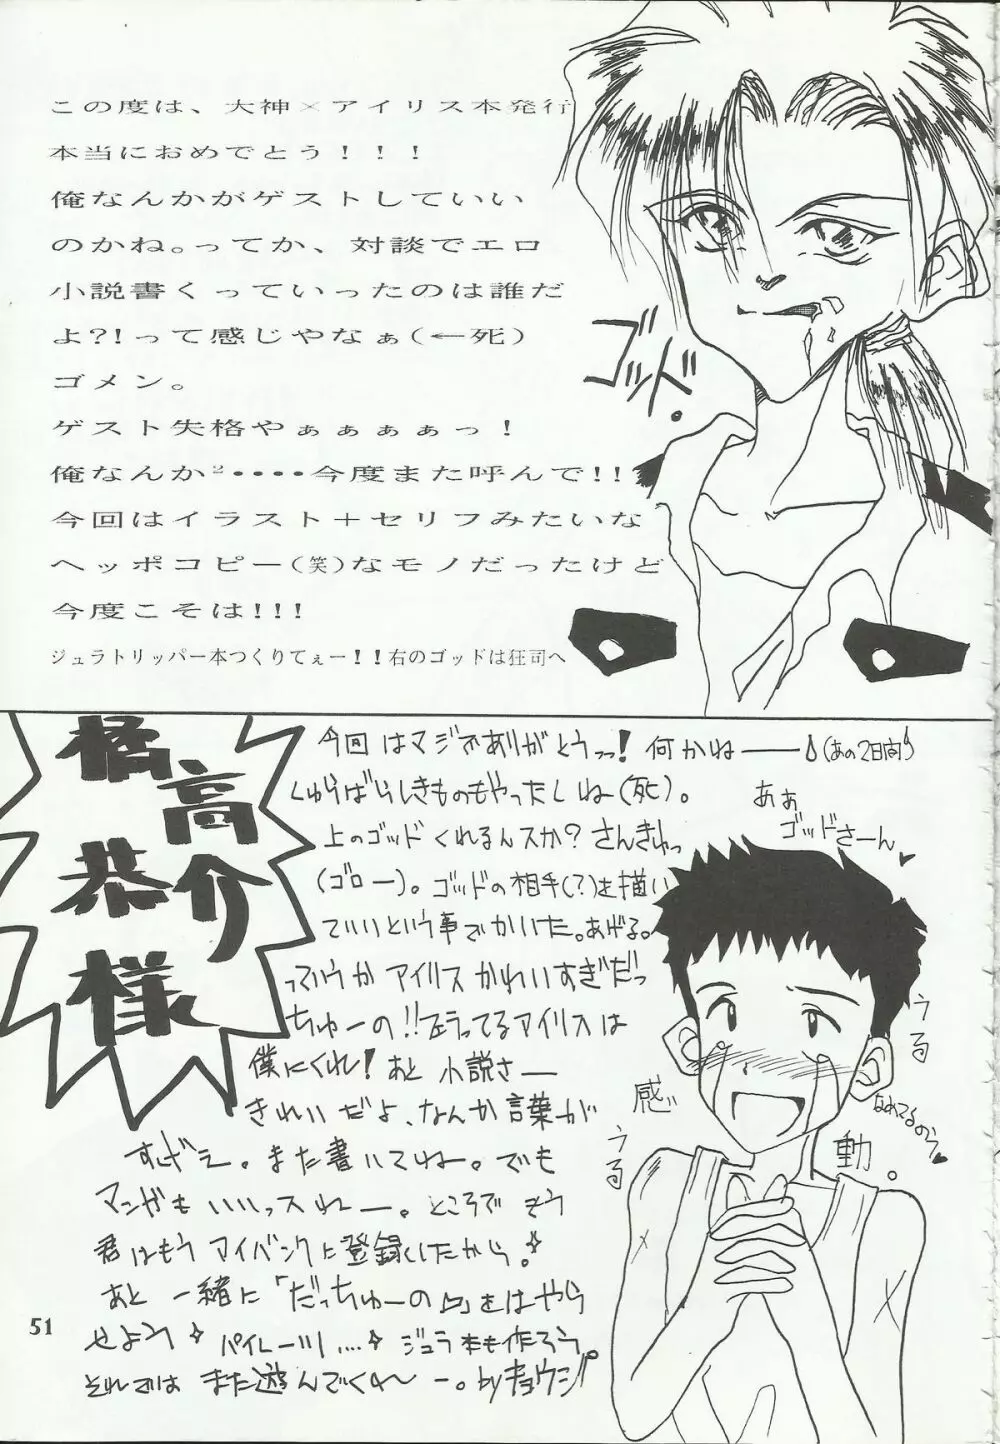 この度は、大神×アイリス本発行
本当におめでとう！！！
俺なんかがゲストしていい
のかね。ってか、対談でエロ
小説書くっていったのは誰だ
よ？！って感じやなぁ（←死）
ゴメン。
ゲスト失格やぁぁぁぁっ！
俺なんか²・・・・今度また呼んで！！
今回はイラスト＋セリフみたいな
ヘッポコピー（笑）なモノだったけど
今度こそは！！！
ジュラトリッパー本つくりてぇー！！右のゴッドは狂司へ
ゴッド。
橘高
恭介
様
今回はマジでありがとうっ！何かねー(あの2日間)
しゅらばらしきものもやったしね(死)。
上のゴッドくれるんスか？さんきゅっ
(ゴロー)。ゴッドの相手(？)を描い
ていいという事でかいた。あげる。
っていうかアイリスかわいすぎだっ
ちゅーの!!
アイリスは
僕にくれ！あと小説さー
きれいだよ、なんか言葉が
すげえ。また書いてね。でも
マンガもいいっスねー。ところで
君はもうアイバンクに登録したから。
あと一緒に「だっちゅーの」をはやら
せようパイレーツ....ジュラ本も作ろう。
それではまた遊んでくれー。byキョウジ
ああ
ゴッドさーん
うる
うる
感
動。
51